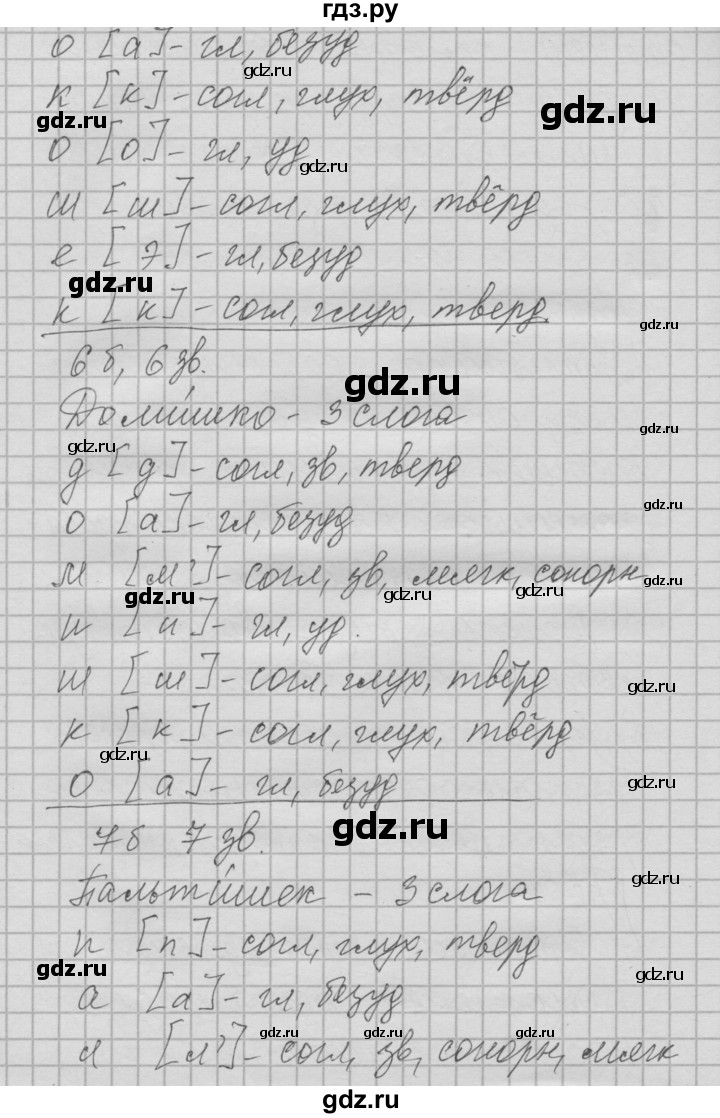 гдз.ру
о [а] - гл, безуд
gdz.ru
к [к] - согл, глух, твёрд
gdz.ru
gdz.ru
о [о] - гл, уд
gdz.ru
ш [ш] - согл, глух, твёрд
е [э] - гл, безуд
gdz.ru
к [к] - согл, глух, тверд
gdz.ru
6 б, 6 зв.
gdz.ru
Доми́шко - 3 слога
gdz.ru
gdz.ru
д [д] - согл, зв, тверд
gdz.ru
о [а] - гл, безуд
м [м'] - согл, зв, мягк, сонорн
gdz.ru
gdz.ru
gdz.ru
gdz.ru
и [и] - гл, уд.
ш [ш] - согл, глух, твёрд
gdz.ru
к [к] - согл, глух, твёрд
gdz.ru
о [а] - гл, безуд
gdz.ru
7 б 7 зв.
gdz.ru
Пальти́шек - 3 слога
gdz.ru
п [п] - согл, глух, тверд
gdz.ru
gdz.ru
а [а] - гл, безуд
gdz.ru
gdz.ru
gdz.ru
л [л'] - согл, зв, сонорн, мягк
gdz.ru